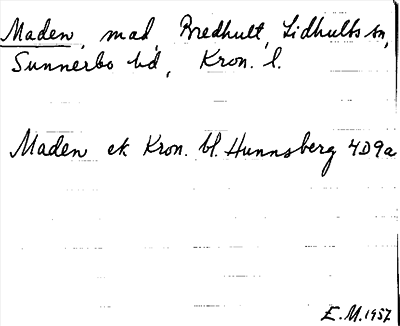 Maden, mad, Bredhult, Lidhults sn,
Sunnerbo hd, Kron. l.
Maden ek Kron. bl. Hunnsberg 4D9a
E.M. 1957